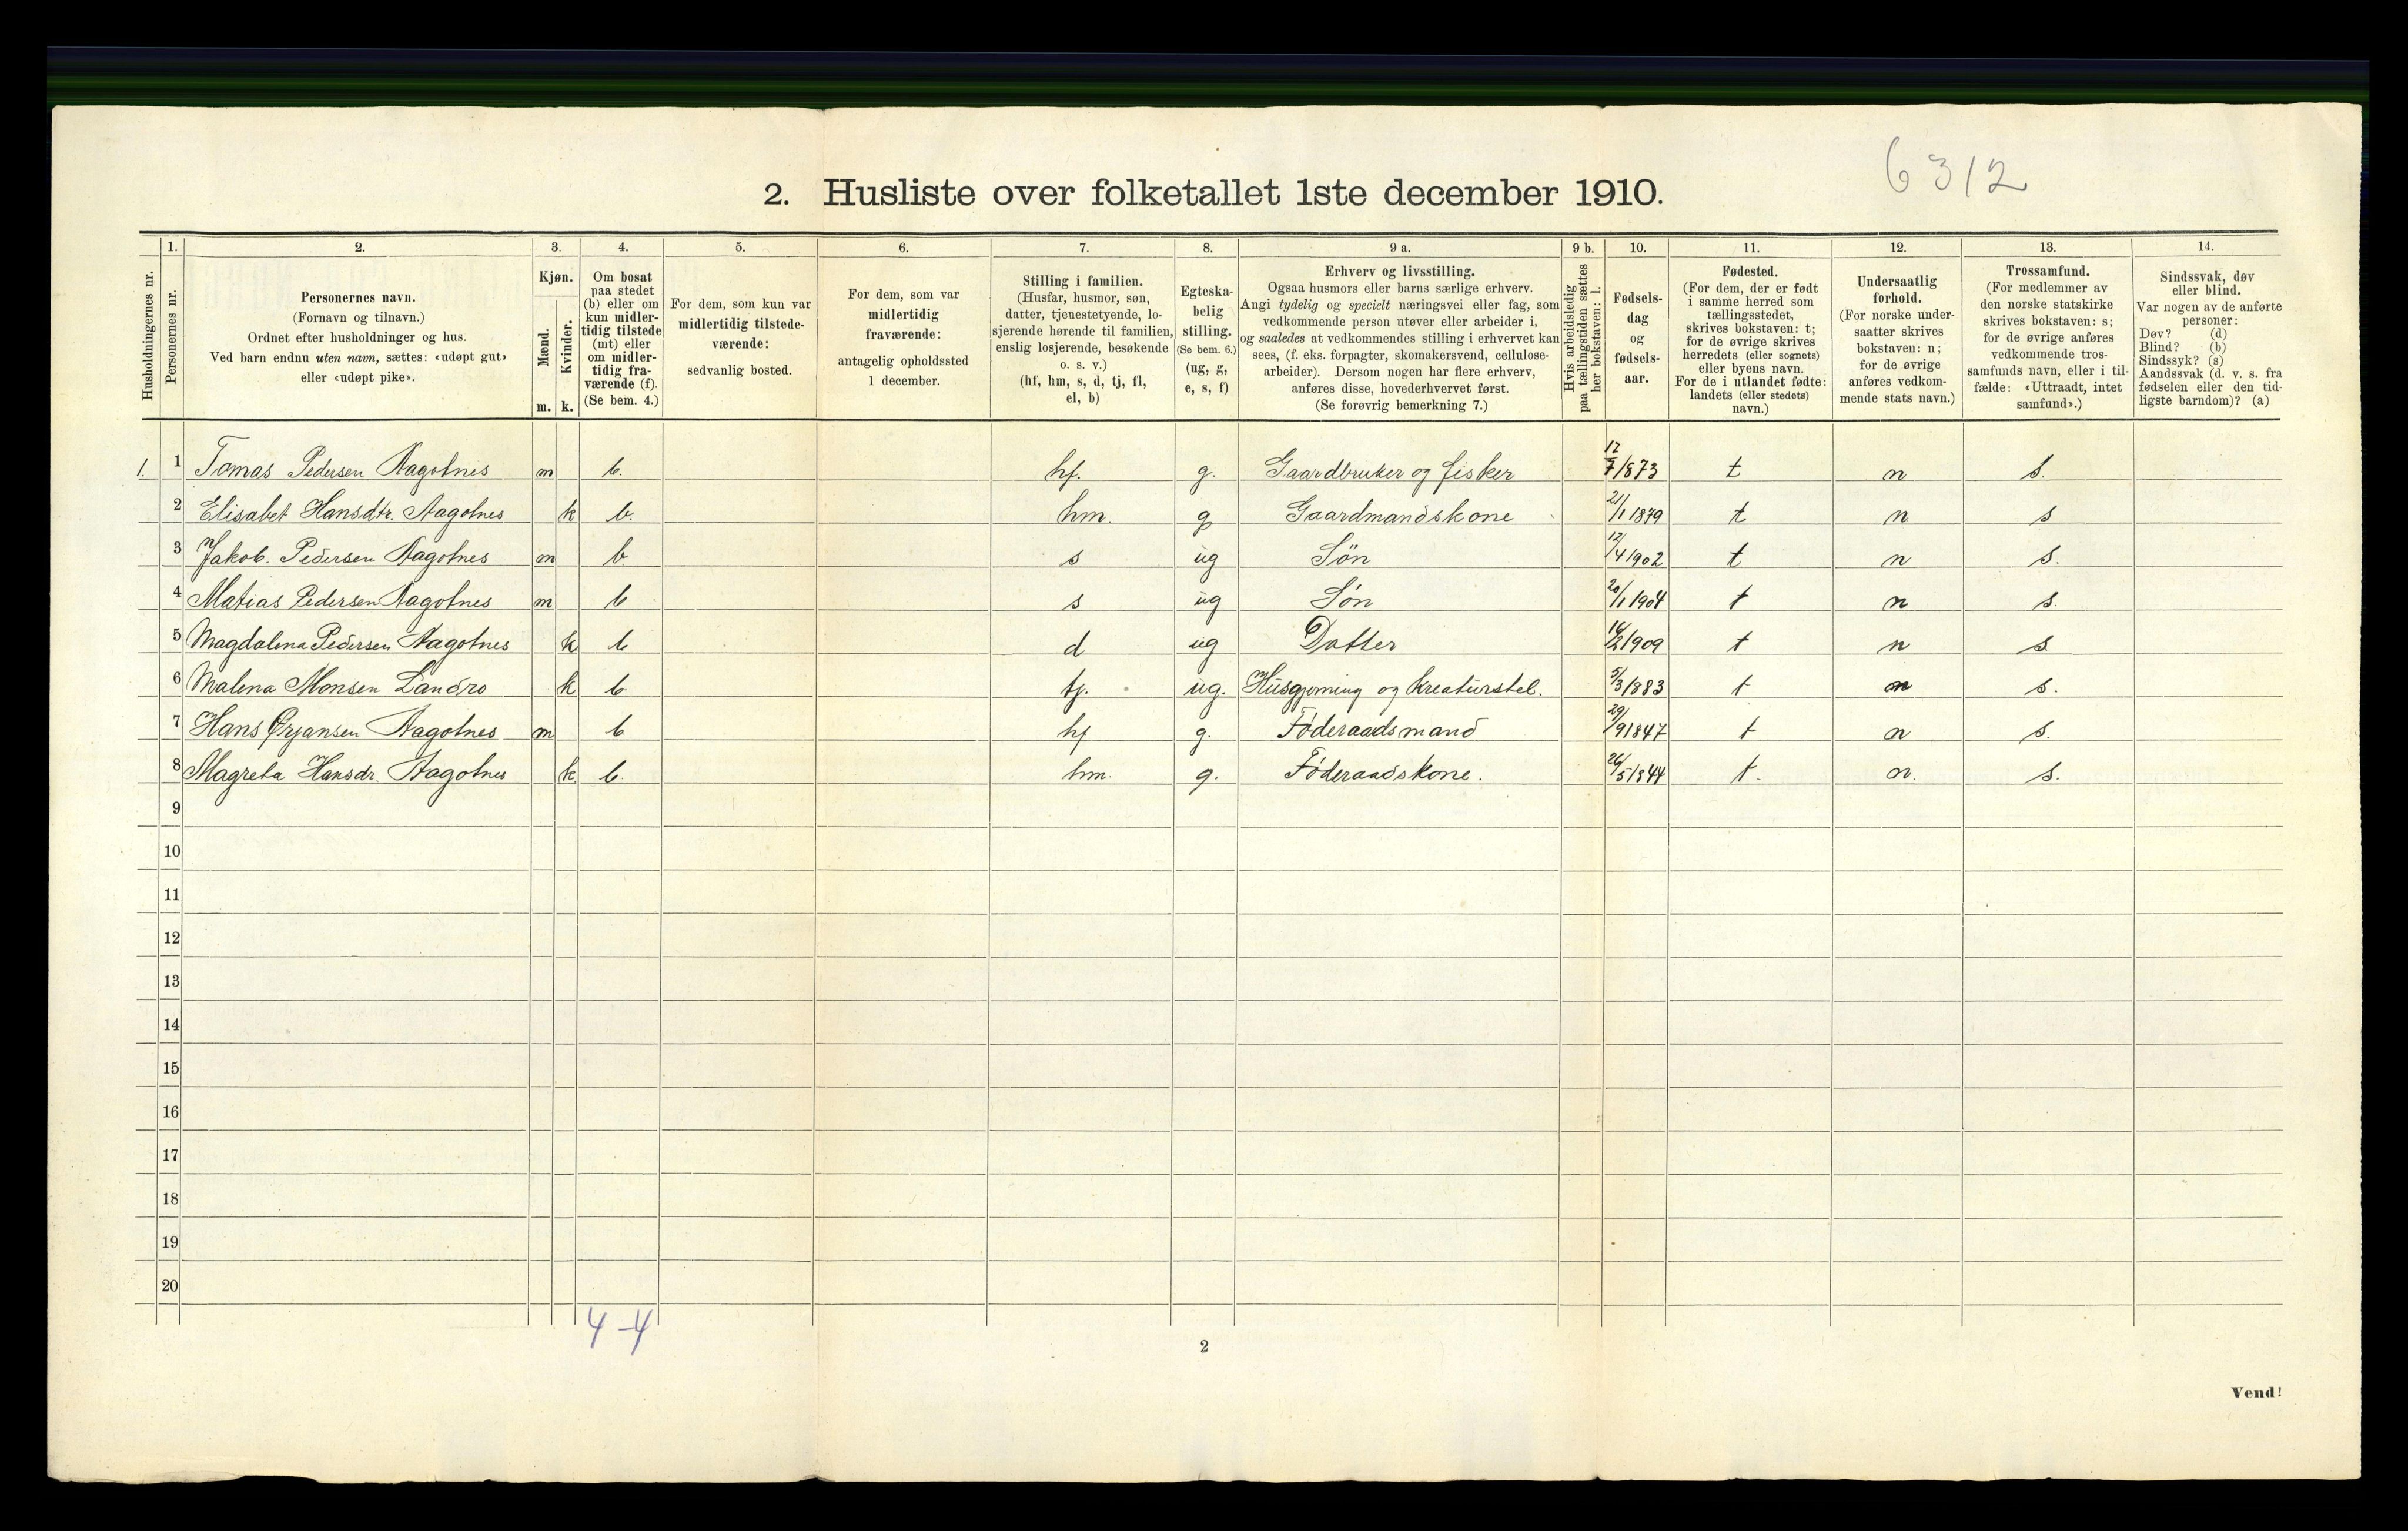 6312
2. Husliste over folketallet 1ste december 1910.
Husholdningernes nr.
1. Personernes nr.
2. Personernes navn. (Fornavn og tilnavn.) Ordnet efter husholdninger og hus. Ved barn endnu uten navn, sættes: «udøpt gut» eller «udøpt pike».
3. Kjøn. Mænd. m. Kvinder. k.
4. Om bosat paa stedet (b) eller om kun midlertidig tilstede (mt) eller om midlertidig fraværende (f). (Se bem. 4.)
5. For dem, som kun var midlertidig tilstedeværende: sedvanlig bosted.
6. For dem, som var midlertidig fraværende: antagelig opholdssted 1 december.
7. Stilling i familien. (Husfar, husmor, søn, datter, tjenestetyende, losjerende hørende til familien, enslig losjerende, besøkende o. s. v.) (hf, hm, s, d, tj, fl, el, b)
8. Egteskabelig stilling. (Se bem. 6.) (ug, g, e, s, f)
9 a. Erhverv og livsstilling. Ogsaa husmors eller barns særlige erhverv. Angi tydelig og specielt næringsvei eller fag, som vedkommende person utøver eller arbeider i, og saaledes at vedkommendes stilling i erhvervet kan sees, (f. eks. forpagter, skomakersvend, cellulosearbeider). Dersom nogen har flere erhverv, anføres disse, hovederhvervet først. (Se forøvrig bemerkning 7.)
9 b. Hvis arbeidsledig paa tællingstiden sættes her bokstaven: l.
10. Fødselsdag og fødselsaar.
11. Fødested. (For dem, der er født i samme herred som tællingsstedet, skrives bokstaven: t; for de øvrige skrives herredets (eller sognets) eller byens navn. For de i utlandet fødte: landets (eller stedets) navn.)
12. Undersaatlig forhold. (For norske undersaatter skrives bokstaven: n; for de øvrige anføres vedkommende stats navn.)
13. Trossamfund. (For medlemmer av den norske statskirke skrives bokstaven: s; for de øvrige anføres vedkommende trossamfunds navn, eller i tilfælde: «Uttraadt, intet samfund».)
14. Sindssvak, døv eller blind. Var nogen av de anførte personer: Døv? (d) Blind? (b) Sindssyk? (s) Aandssvak (d. v. s. fra fødselen eller den tidligste barndom)? (a)
1. 1 Tomas Pedersen Aagotnes m b. hf. g. Gaardbruker og fisker 12/7 1873 t n s.
2 Elisabet Hansdtr. Aagotnes k b. hm. g Gaardmandskone 21/1 1879 t n s
3 Jakob. Pedersen Aagotnes m b s ug Søn 12/4 1902 t n s.
4 Matias Pedersen Aagotnes m b s ug Søn 20/1 1904 t n s.
5 Magdalena Pedersen Aagotnes k b d ug Datter 16/2 1909 t n s.
6 Malena Monsen Landro k b tj. ug. Husgjerning og kreaturstel. 5/3 1883 t n s.
7 Hans Ørjansen Aagotnes m b hf g. Føderaadsmand 29/9 1847 t n s.
8 Magreta Hansdr. Aagotnes k b. hm. g. Føderaadskone. 26/5 1844 t. n. s.
9
10
11
12
13
14
15
16
17
18
19
20
4-4
2
Vend!